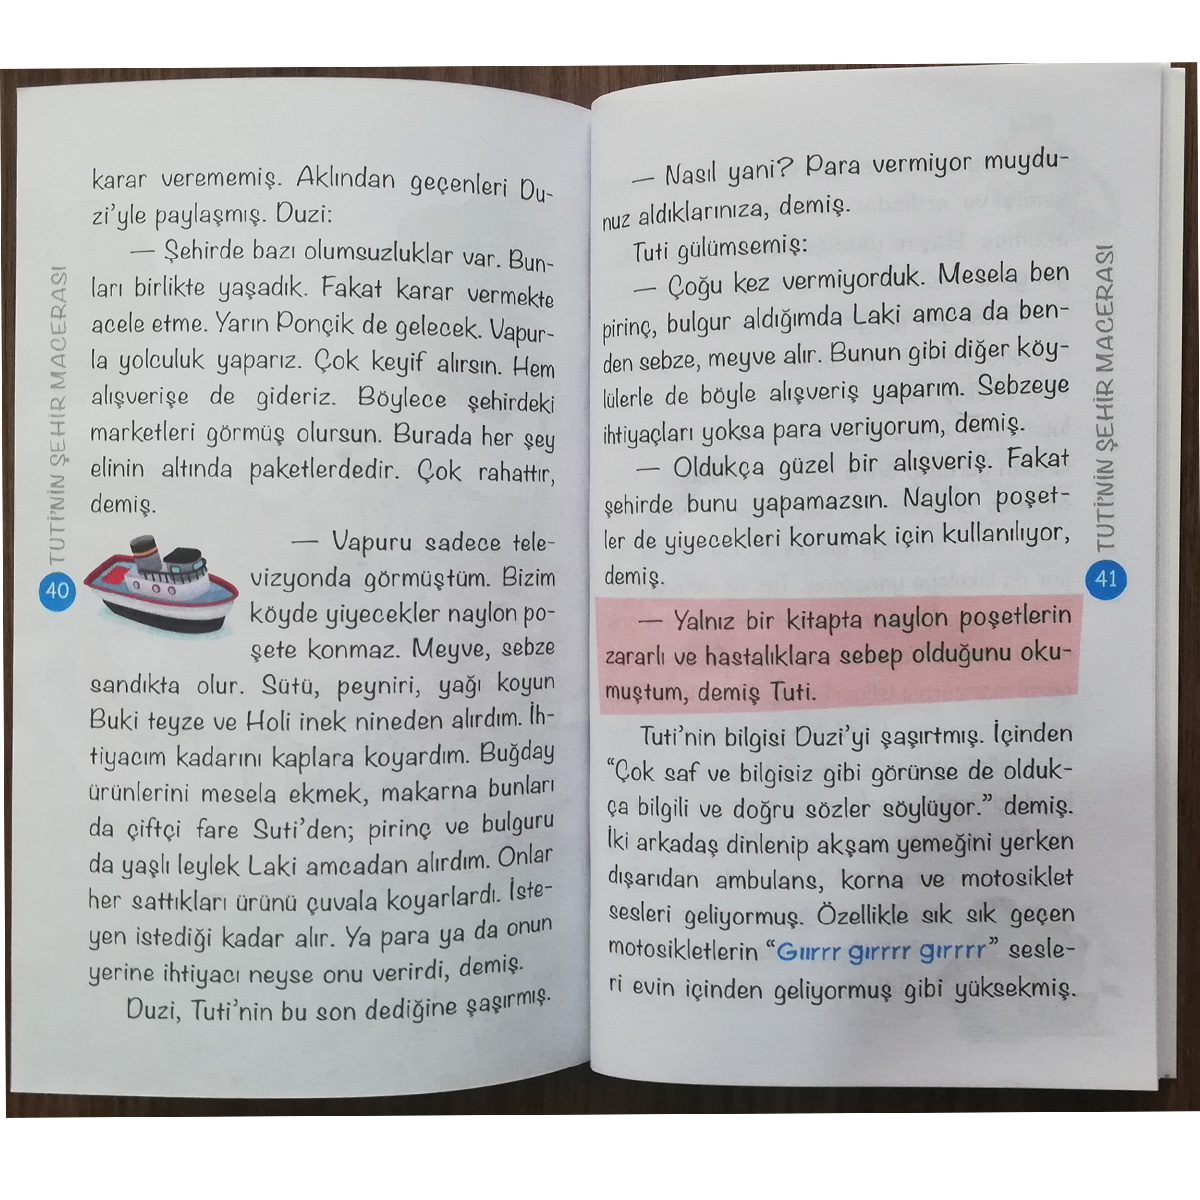 karar verememiş. Aklından geçenleri Du-
zi'yle paylaşmış. Duzi:
— Şehirde bazı olumsuzluklar var. Bun-
ları birlikte yaşadık. Fakat karar vermekte
acele etme. Yarın Ponçik de gelecek. Vapur-
la yolculuk yaparız. Çok keyif alırsın. Hem
alışverişe de gideriz. Böylece şehirdeki
marketleri görmüş olursun. Burada her şey
elinin altında paketlerdedir. Çok rahattır,
demiş.
— Vapuru sadece tele-
vizyonda görmüştüm. Bizim
köyde yiyecekler naylon po-
şete konmaz. Meyve, sebze
sandıkta olur. Sütü, peyniri, yağı koyun
Buki teyze ve Holi inek nineden alırdım. İh-
tiyacım kadarını kaplara koyardım. Buğday
ürünlerini mesela ekmek, makarna bunları
da çiftçi fare Suti'den; pirinç ve bulguru
da yaşlı leylek Laki amcadan alırdım. Onlar
her sattıkları ürünü çuvala koyarlardı. İste-
yen istediği kadar alır. Ya para ya da onun
yerine ihtiyacı neyse onu verirdi, demiş.
Duzi, Tuti'nin bu son dediğine şaşırmış.
TUTİ'NİN ŞEHİR MACERASI
40
— Nasıl yani? Para vermiyor muydu-
nuz aldıklarınıza, demiş.
Tuti gülümsemiş:
— Çoğu kez vermiyorduk. Mesela ben
pirinç, bulgur aldığımda Laki amca da ben-
den sebze, meyve alır. Bunun gibi diğer köy-
lülerle de böyle alışveriş yaparım. Sebzeye
ihtiyaçları yoksa para veriyorum, demiş.
— Oldukça güzel bir alışveriş. Fakat
şehirde bunu yapamazsın. Naylon poşet-
ler de yiyecekleri korumak için kullanılıyor,
demiş.
— Yalnız bir kitapta naylon poşetlerin
zararlı ve hastalıklara sebep olduğunu oku-
muştum, demiş Tuti.
Tuti'nin bilgisi Duzi'yi şaşırtmış. İçinden
“Çok saf ve bilgisiz gibi görünse de olduk-
ça bilgili ve doğru sözler söylüyor.” demiş.
İki arkadaş dinlenip akşam yemeğini yerken
dışarıdan ambulans, korna ve motosiklet
sesleri geliyormuş. Özellikle sık sık geçen
motosikletlerin “Gıırrr gırrrr gırrrr” sesle-
ri evin içinden geliyormuş gibi yüksekmiş.
TUTİ'NİN ŞEHİR MACERASI
41